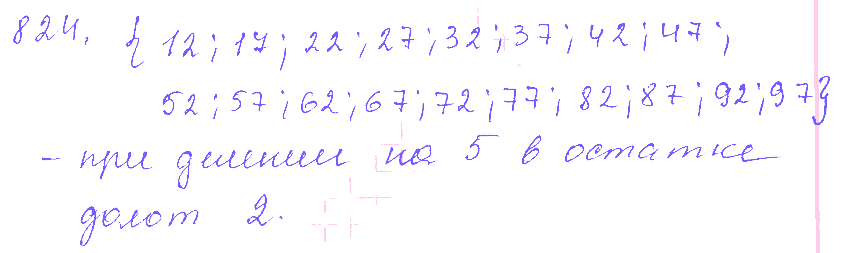 824. {12; 17; 22; 27; 32; 37; 42; 47;
52; 57; 62; 67; 72; 77; 82; 87; 92; 97}
- при делении на 5 в остатке
дают 2.